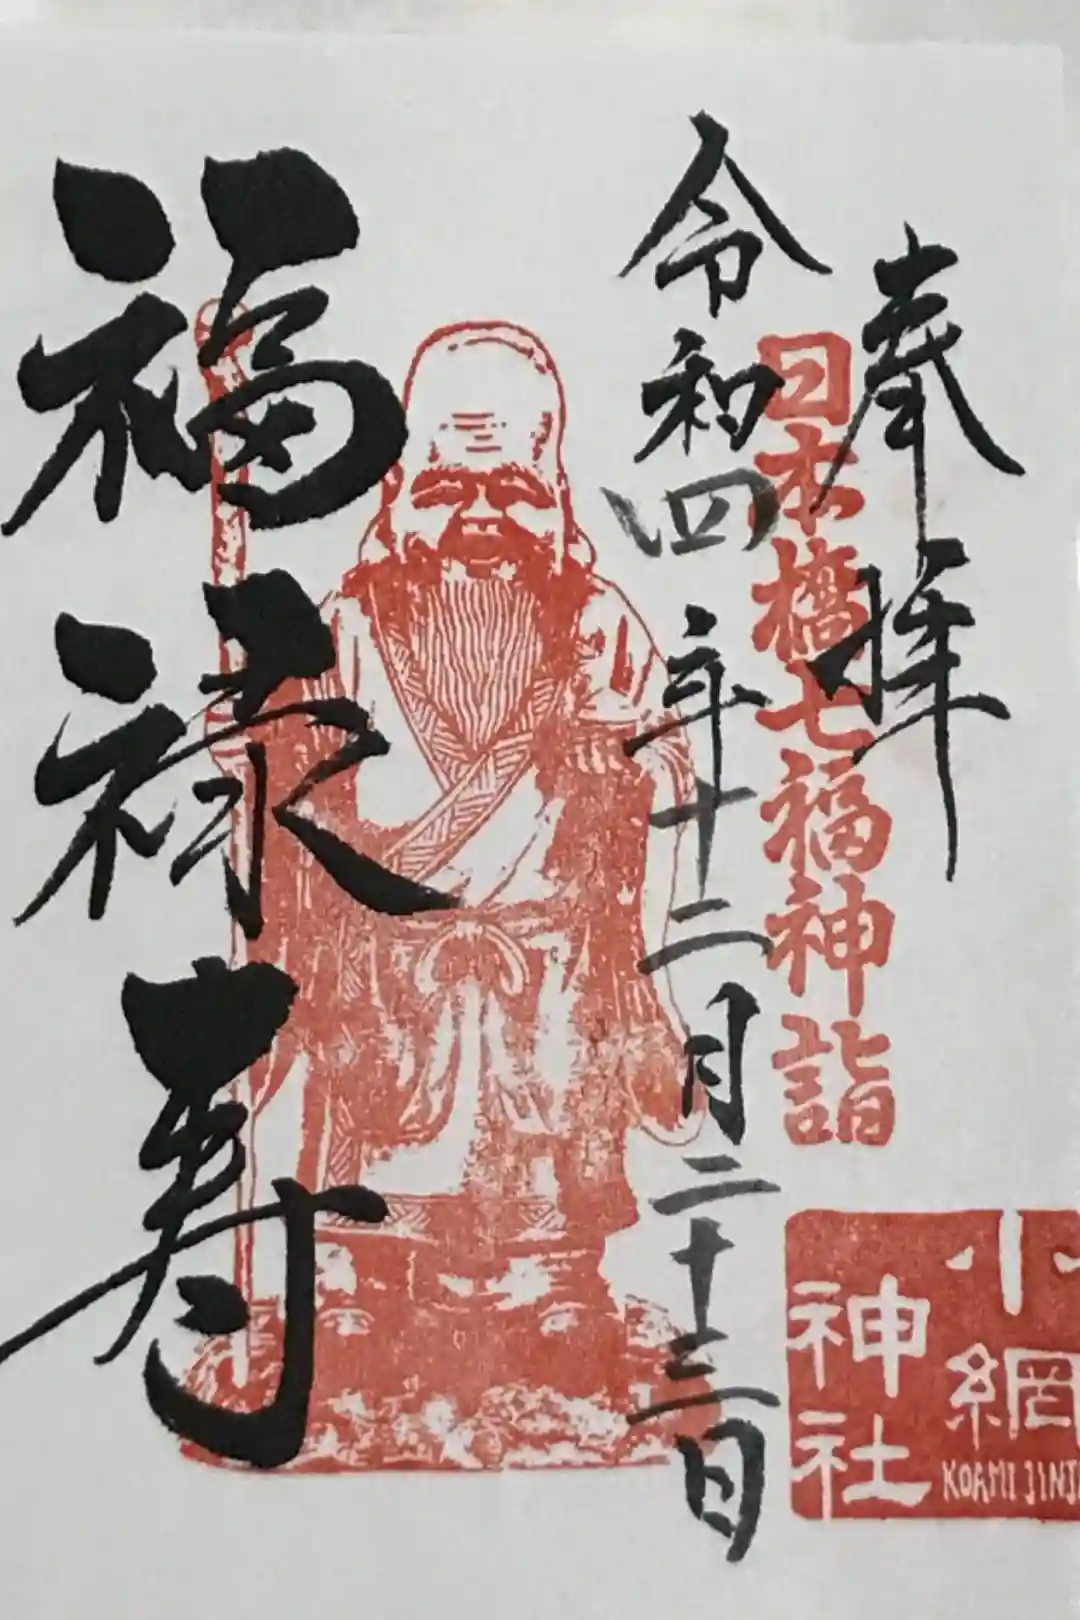 奉拝
日本橋七福神詣
令和四年十二月二十三日
福禄寿
小網
神社
KOAMI JINJ